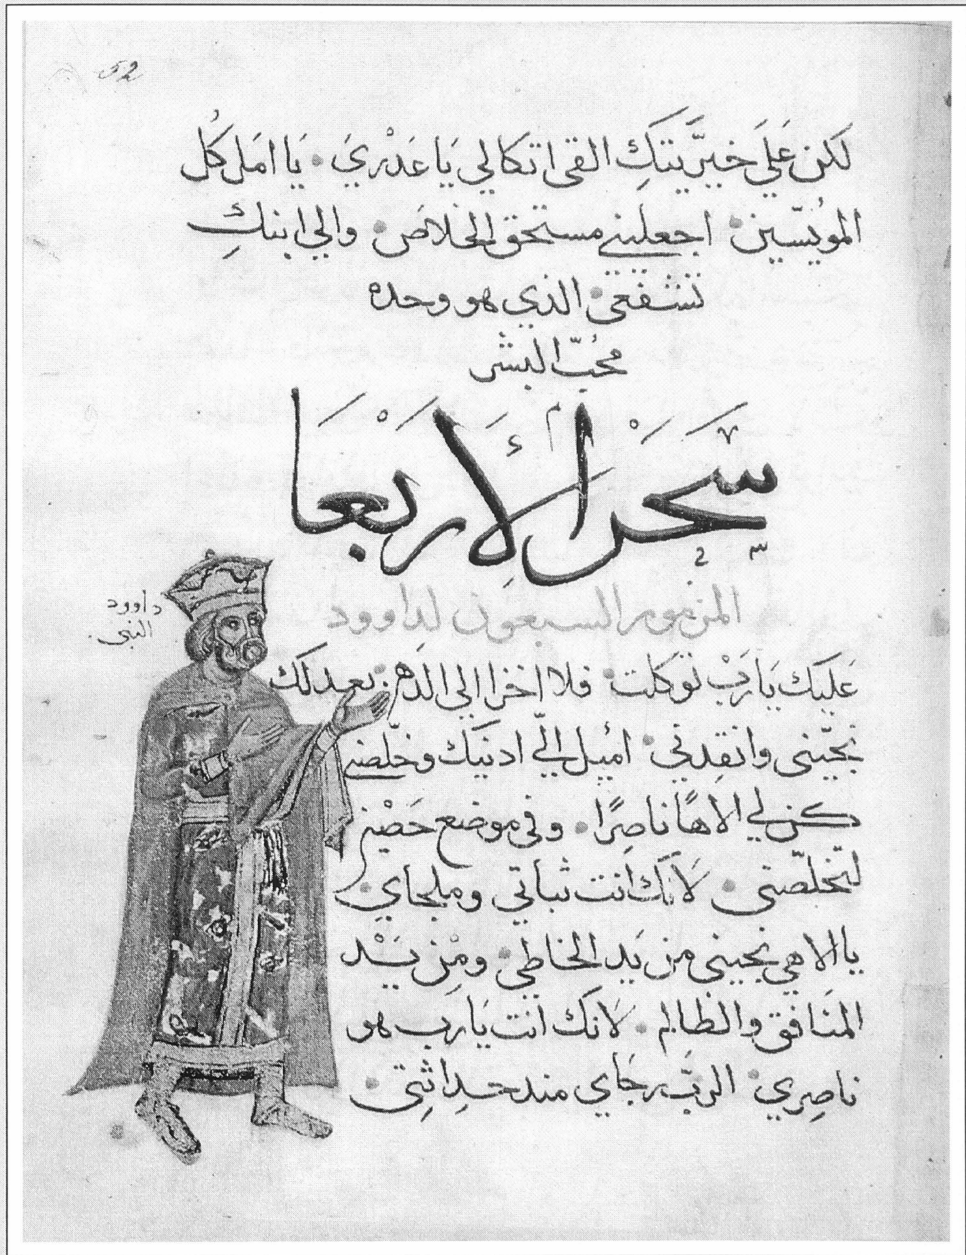 52
لَكن عَلَي خيرَّيتكِ القي اتكالي يَا عَدْرِيَ. يَا امَل كُل
المويُسّين. اجعليني مستحق الخلاصَ. والي ابنكِ
تشفعي الذي هو وحده
مُحبّ البشر
سَحَرْ الأَرْبَعَا
المزمور السبعون لداوود
دأوود
النبي
عَليك يَا رَبْ توكلت. فلا اخزا الي الدهر. بعدلك
نجيّني وانقِدني. اميُل اليّ ادنيك وخلّصني
كن لي الاهًا ناصِرًا. وفي موضع حَصْين
لتخلّصني. لانكَ انت ثباتي وملجاي.
يا الاهي نجيني من يَد الخاطي. ومِن يَد
المنَافق والظالم. لانَك انت يَارَب هو
ناصِري. الربّ رجَاي مند حداثِتي.